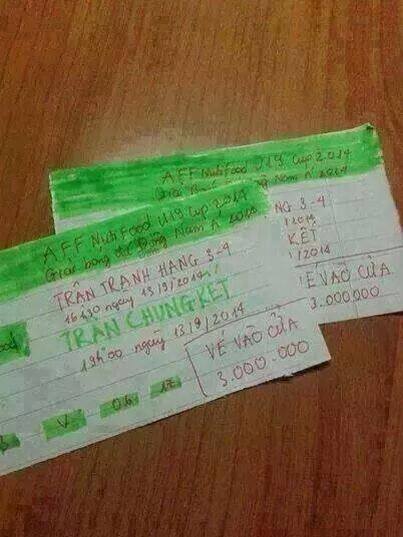 AFF Nutifood U19 Cup 2014
AFF Nutifood U19 Cup 2014
Giải bóng đá Đông Nam Á 2014
TRẬN TRANH HẠNG 3-4
16h30 ngày 13/9/2014
TRẬN CHUNG KẾT
19h00 ngày 13/9/2014
VÉ VÀO CỬA
3.000.000
NG 3-4
/2014
KẾT
/2014
É VÀO CỬA
3.000.000
V
06
12